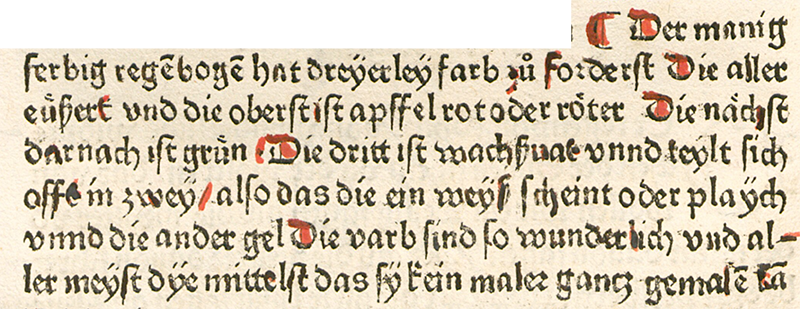 ¶ Der manig
ferbig regēbogē hat dreyerley farb zů forderst Die aller
eüßert vnd die oberst ist apffel rot oder röter Die nächst
darnach ist grün Die dritt ist wachßuar vnnd teylt sich
offt in zwey / also das die ein weyß scheint oder playch
vnnd die ander gel Die varb sind so wunderlich vnd al-
ler meyst dye mittelst das sy kein maler gantz gemalē kā